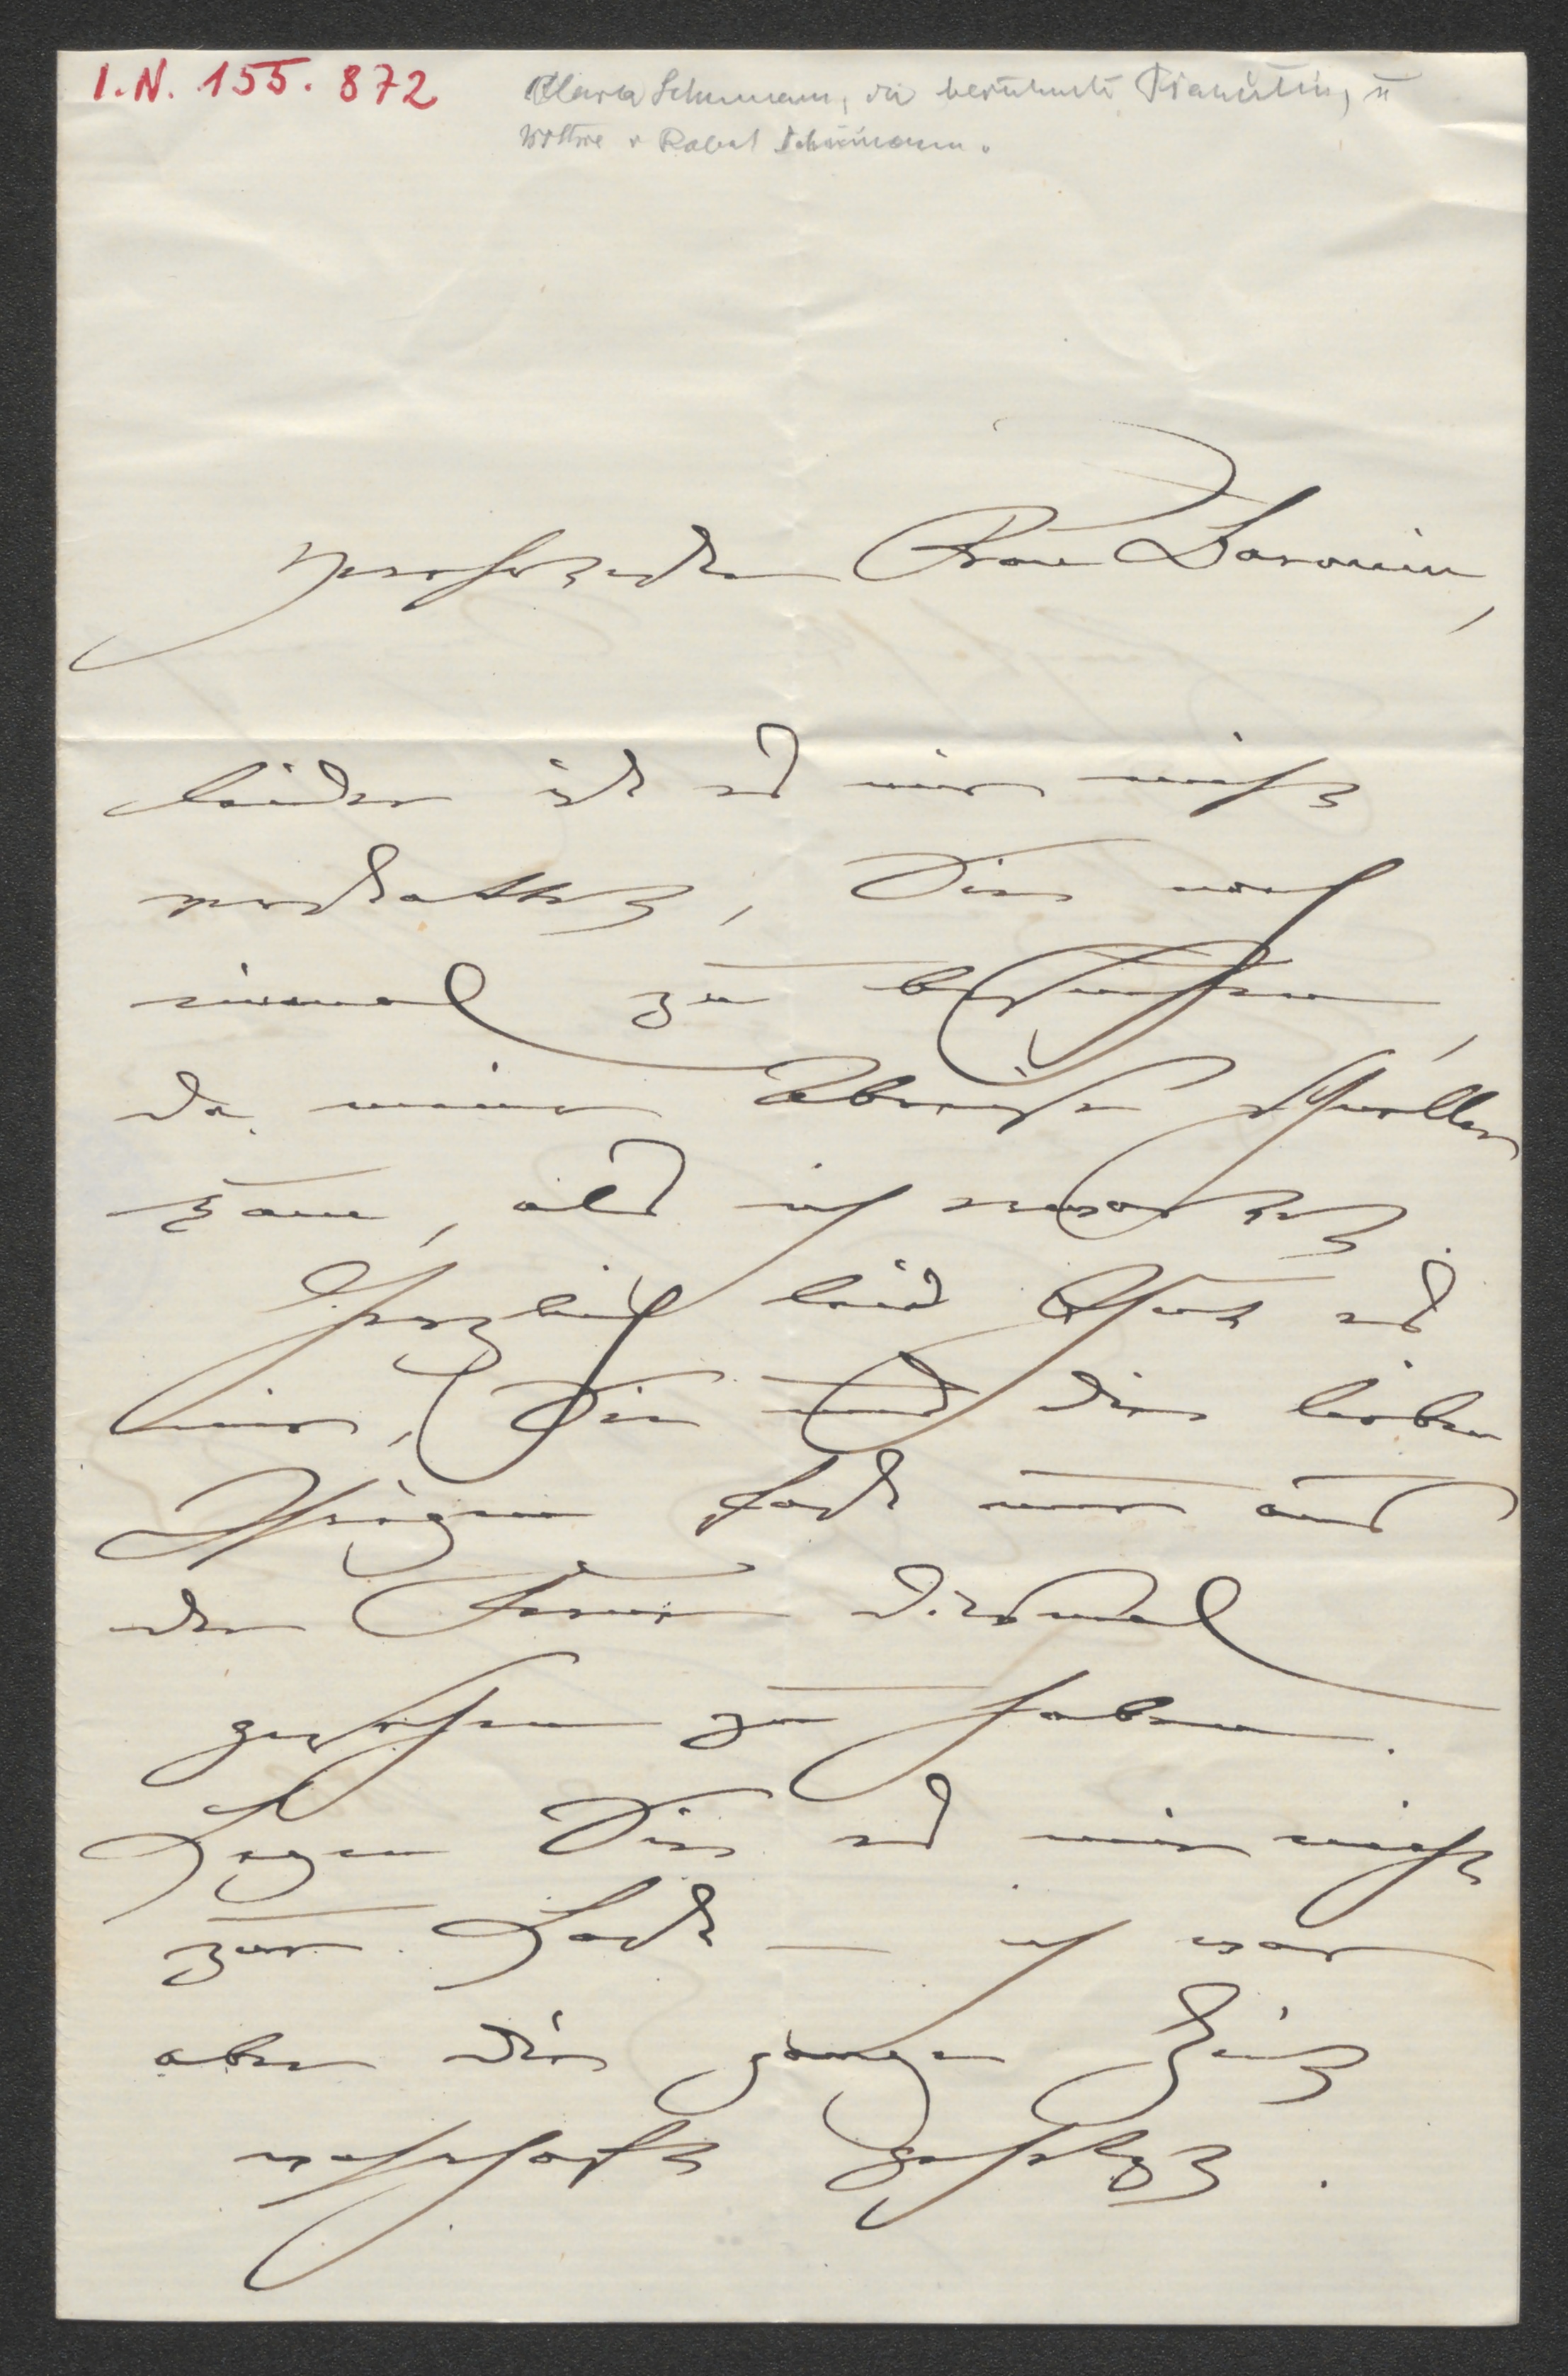 I.N. 155.872
Clara Schumann, die berühmte Pianistin, u
Wittwe v Robert Schumann.
Verehrteste Frau Baronin,
leider ist es mir nicht
verstattet, Sie noch
einmal zu besuchen,
da meine Abreise schneller
kam, als ich erwartet.
Herzlich leid thut es
mir, Sie und die lieben
Ihrigen fast nur aus
der Ferne diesmal
gesehen zu haben.
Legen Sie es mir nicht
zur Last — ich war
aber die ganze Zeit
gehetzt.